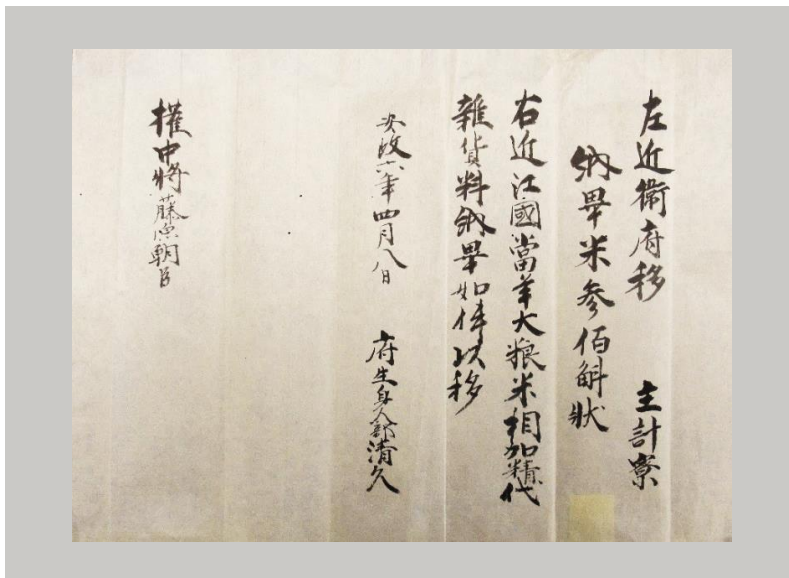 左近衛府移　主計寮
納畢米参佰斛状
右近江國當年大粮米相加精代
雑貨料納畢如件以移
安政六年四月八日　府生身人部清久
権中将藤原朝臣